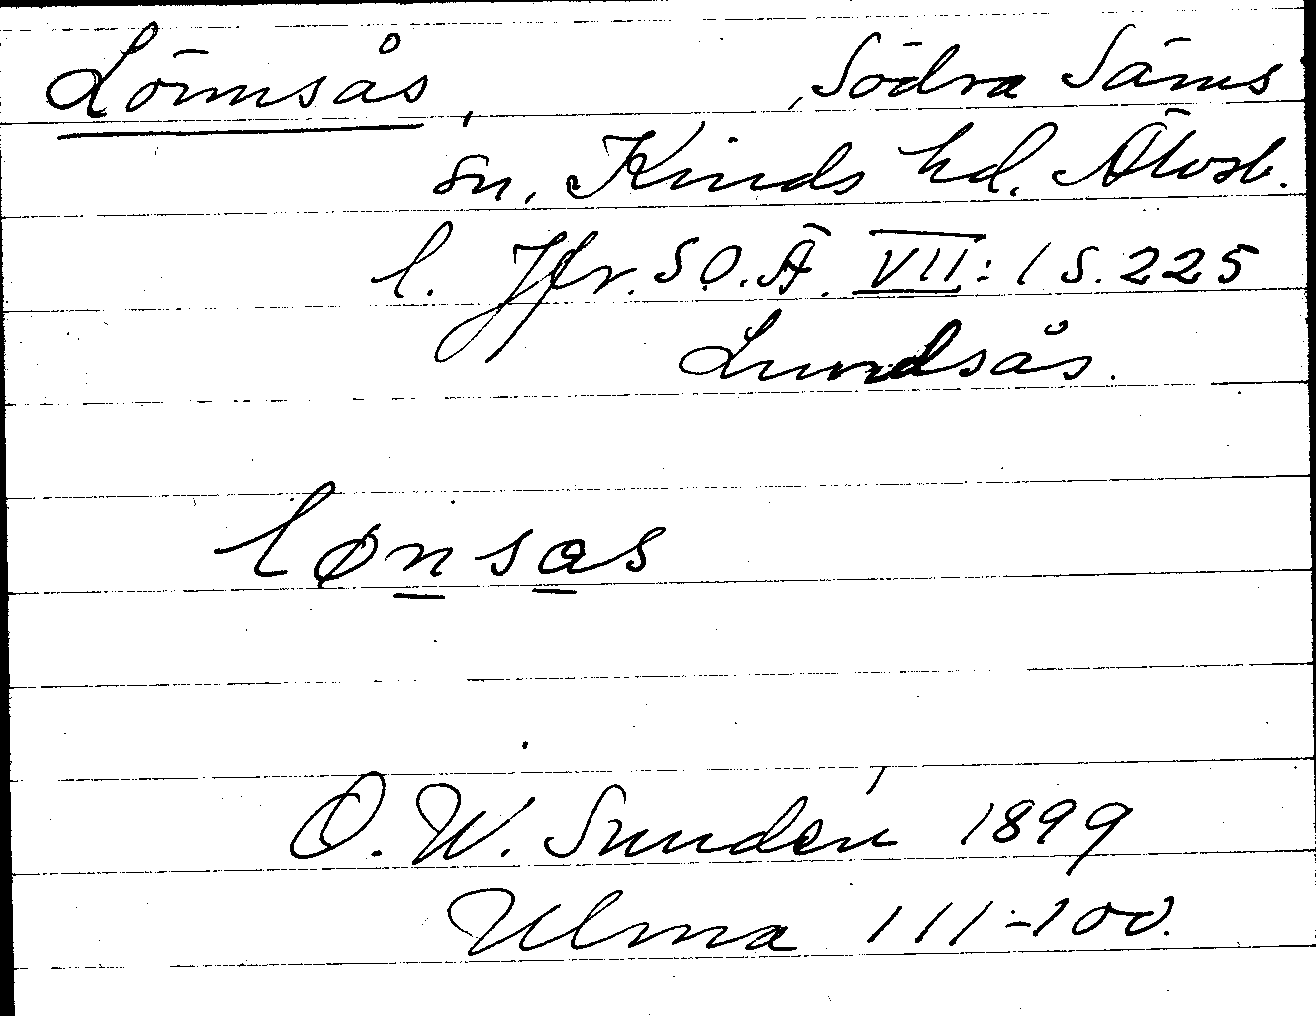 Lönnsås, Södra Säms
sn, Kinds hd. Älvsb.
l. Jfr. S O. Ä. VII: 1 S. 225
Lundsås.
lønsas
O. W. Sundén 1899
Ulma 111-100.